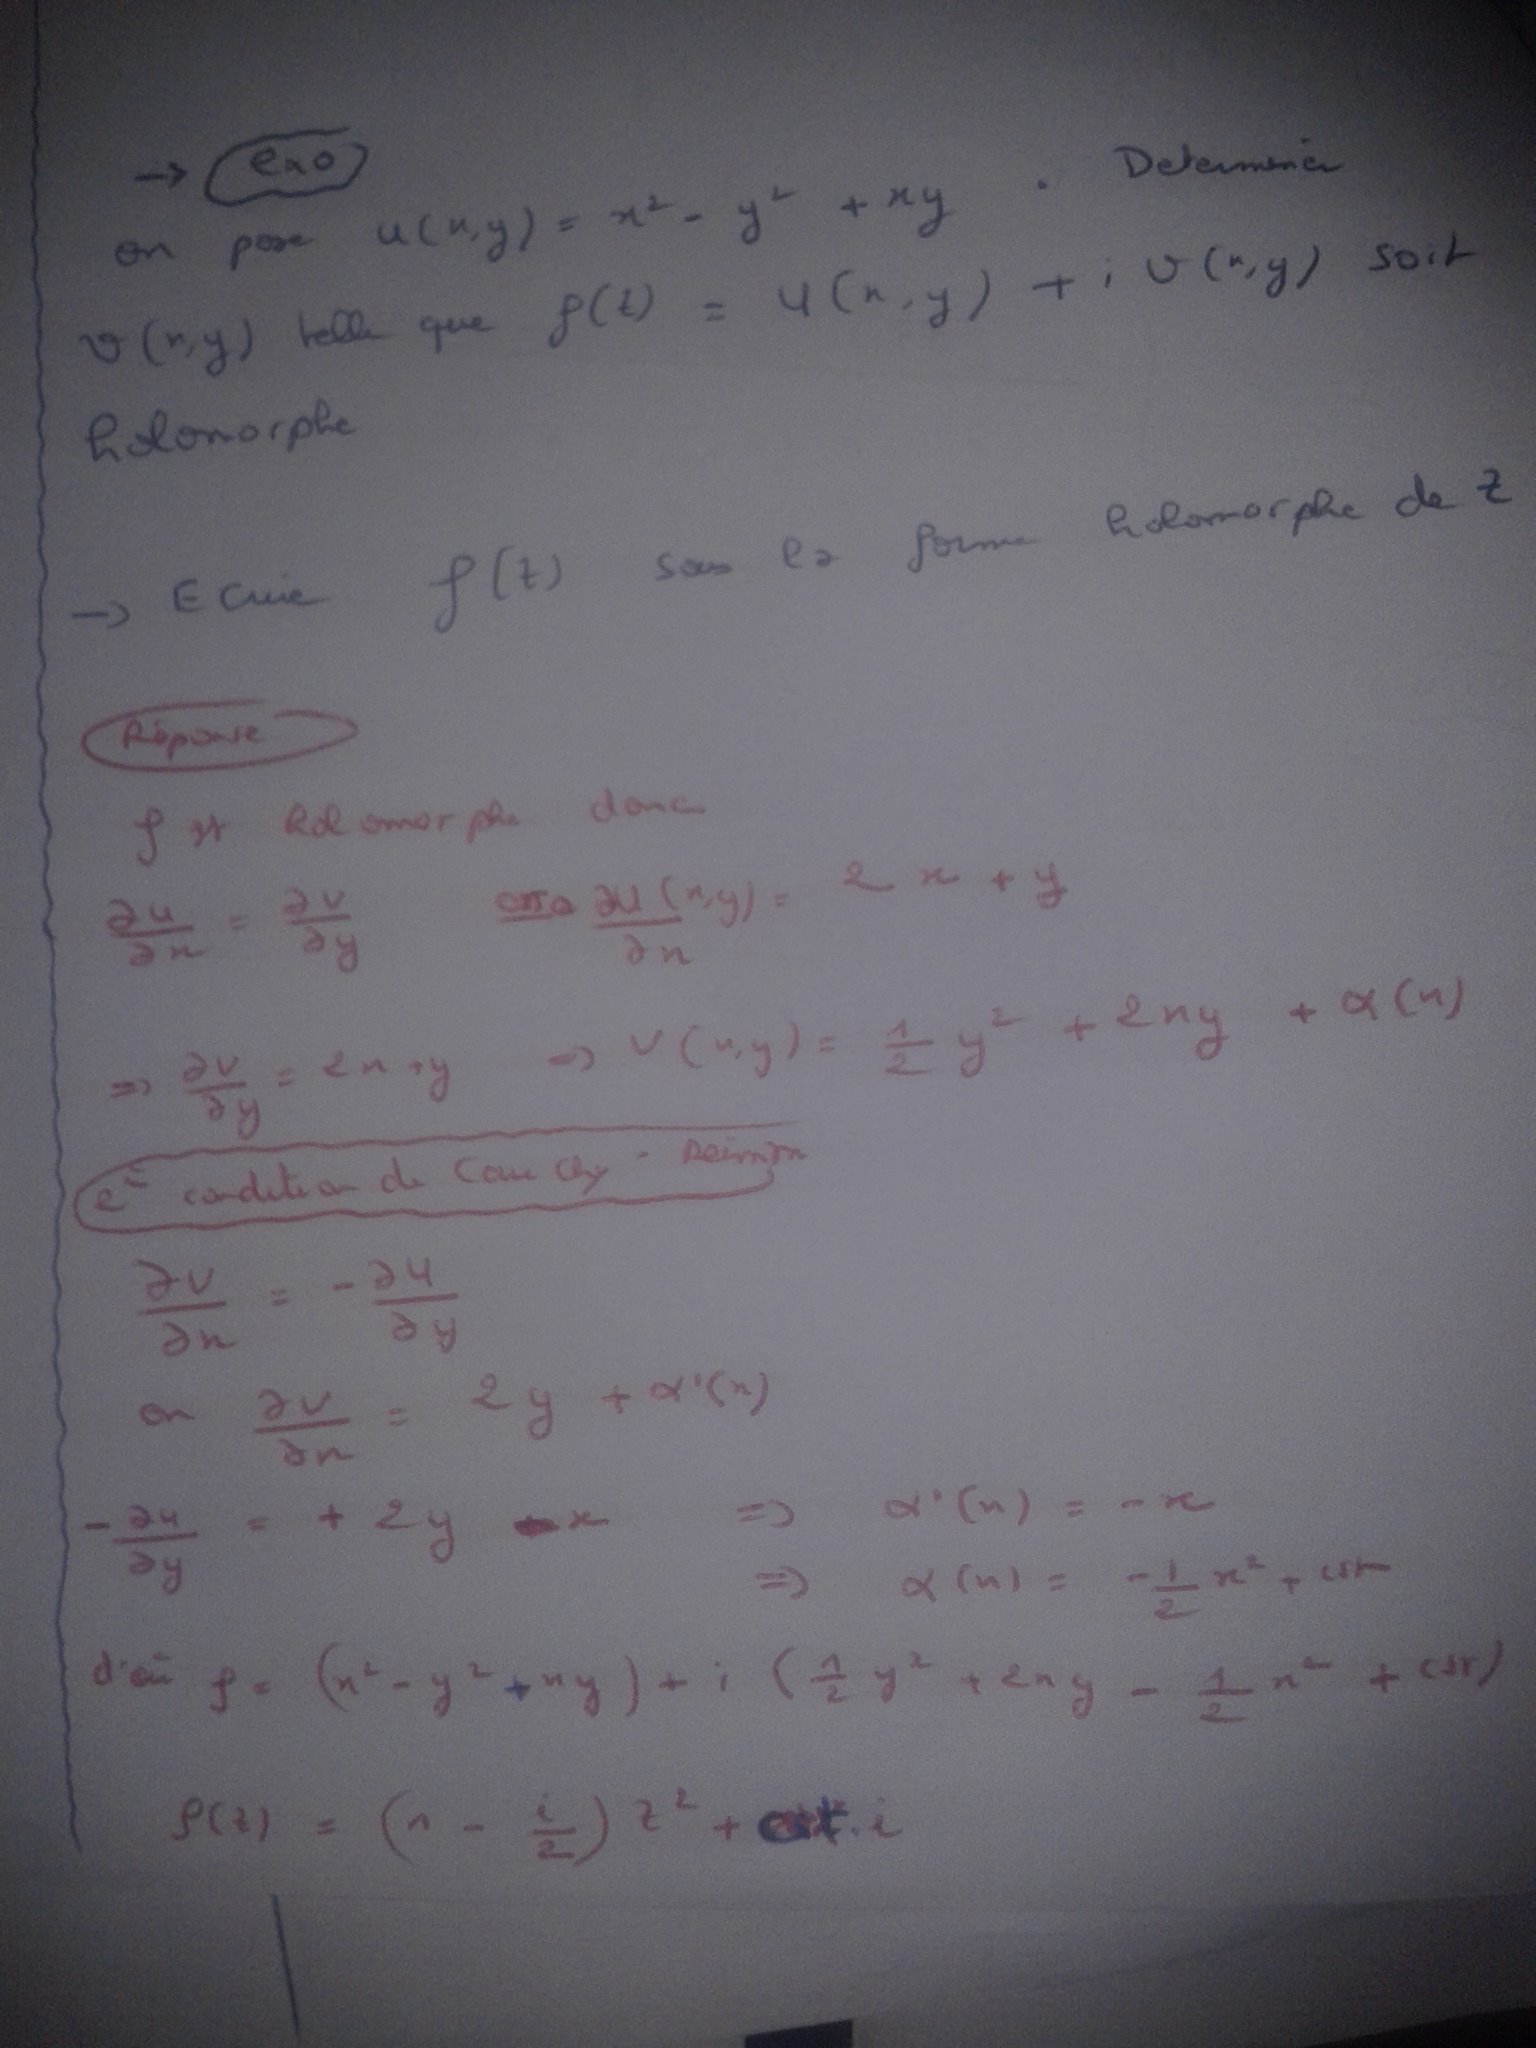 → exo
on pose u(x,y) = x² - y² + xy . Determiner
v(x,y) telle que f(z) = u(x,y) + i v(x,y) soit
holomorphe
→ Ecrire f(z) sous la forme holomorphe de z
Réponse
f est holomorphe donc
∂u/∂x = ∂v/∂y ∂u(x,y)/∂x = 2x + y
=> ∂v/∂y = 2x + y => v(x,y) = 1/2 y² + 2xy + α(x)
2e condition de Cauchy - Reimann
∂v/∂x = - ∂u/∂y
on ∂v/∂x = 2y + α'(x)
- ∂u/∂y = + 2y - x => α'(x) = -x
=> α(x) = - 1/2 x² + cst
d'où f = (x² - y² + xy) + i (1/2 y² + 2xy - 1/2 x² + cst)
f(z) = (1 - i/2) z² + cst.i